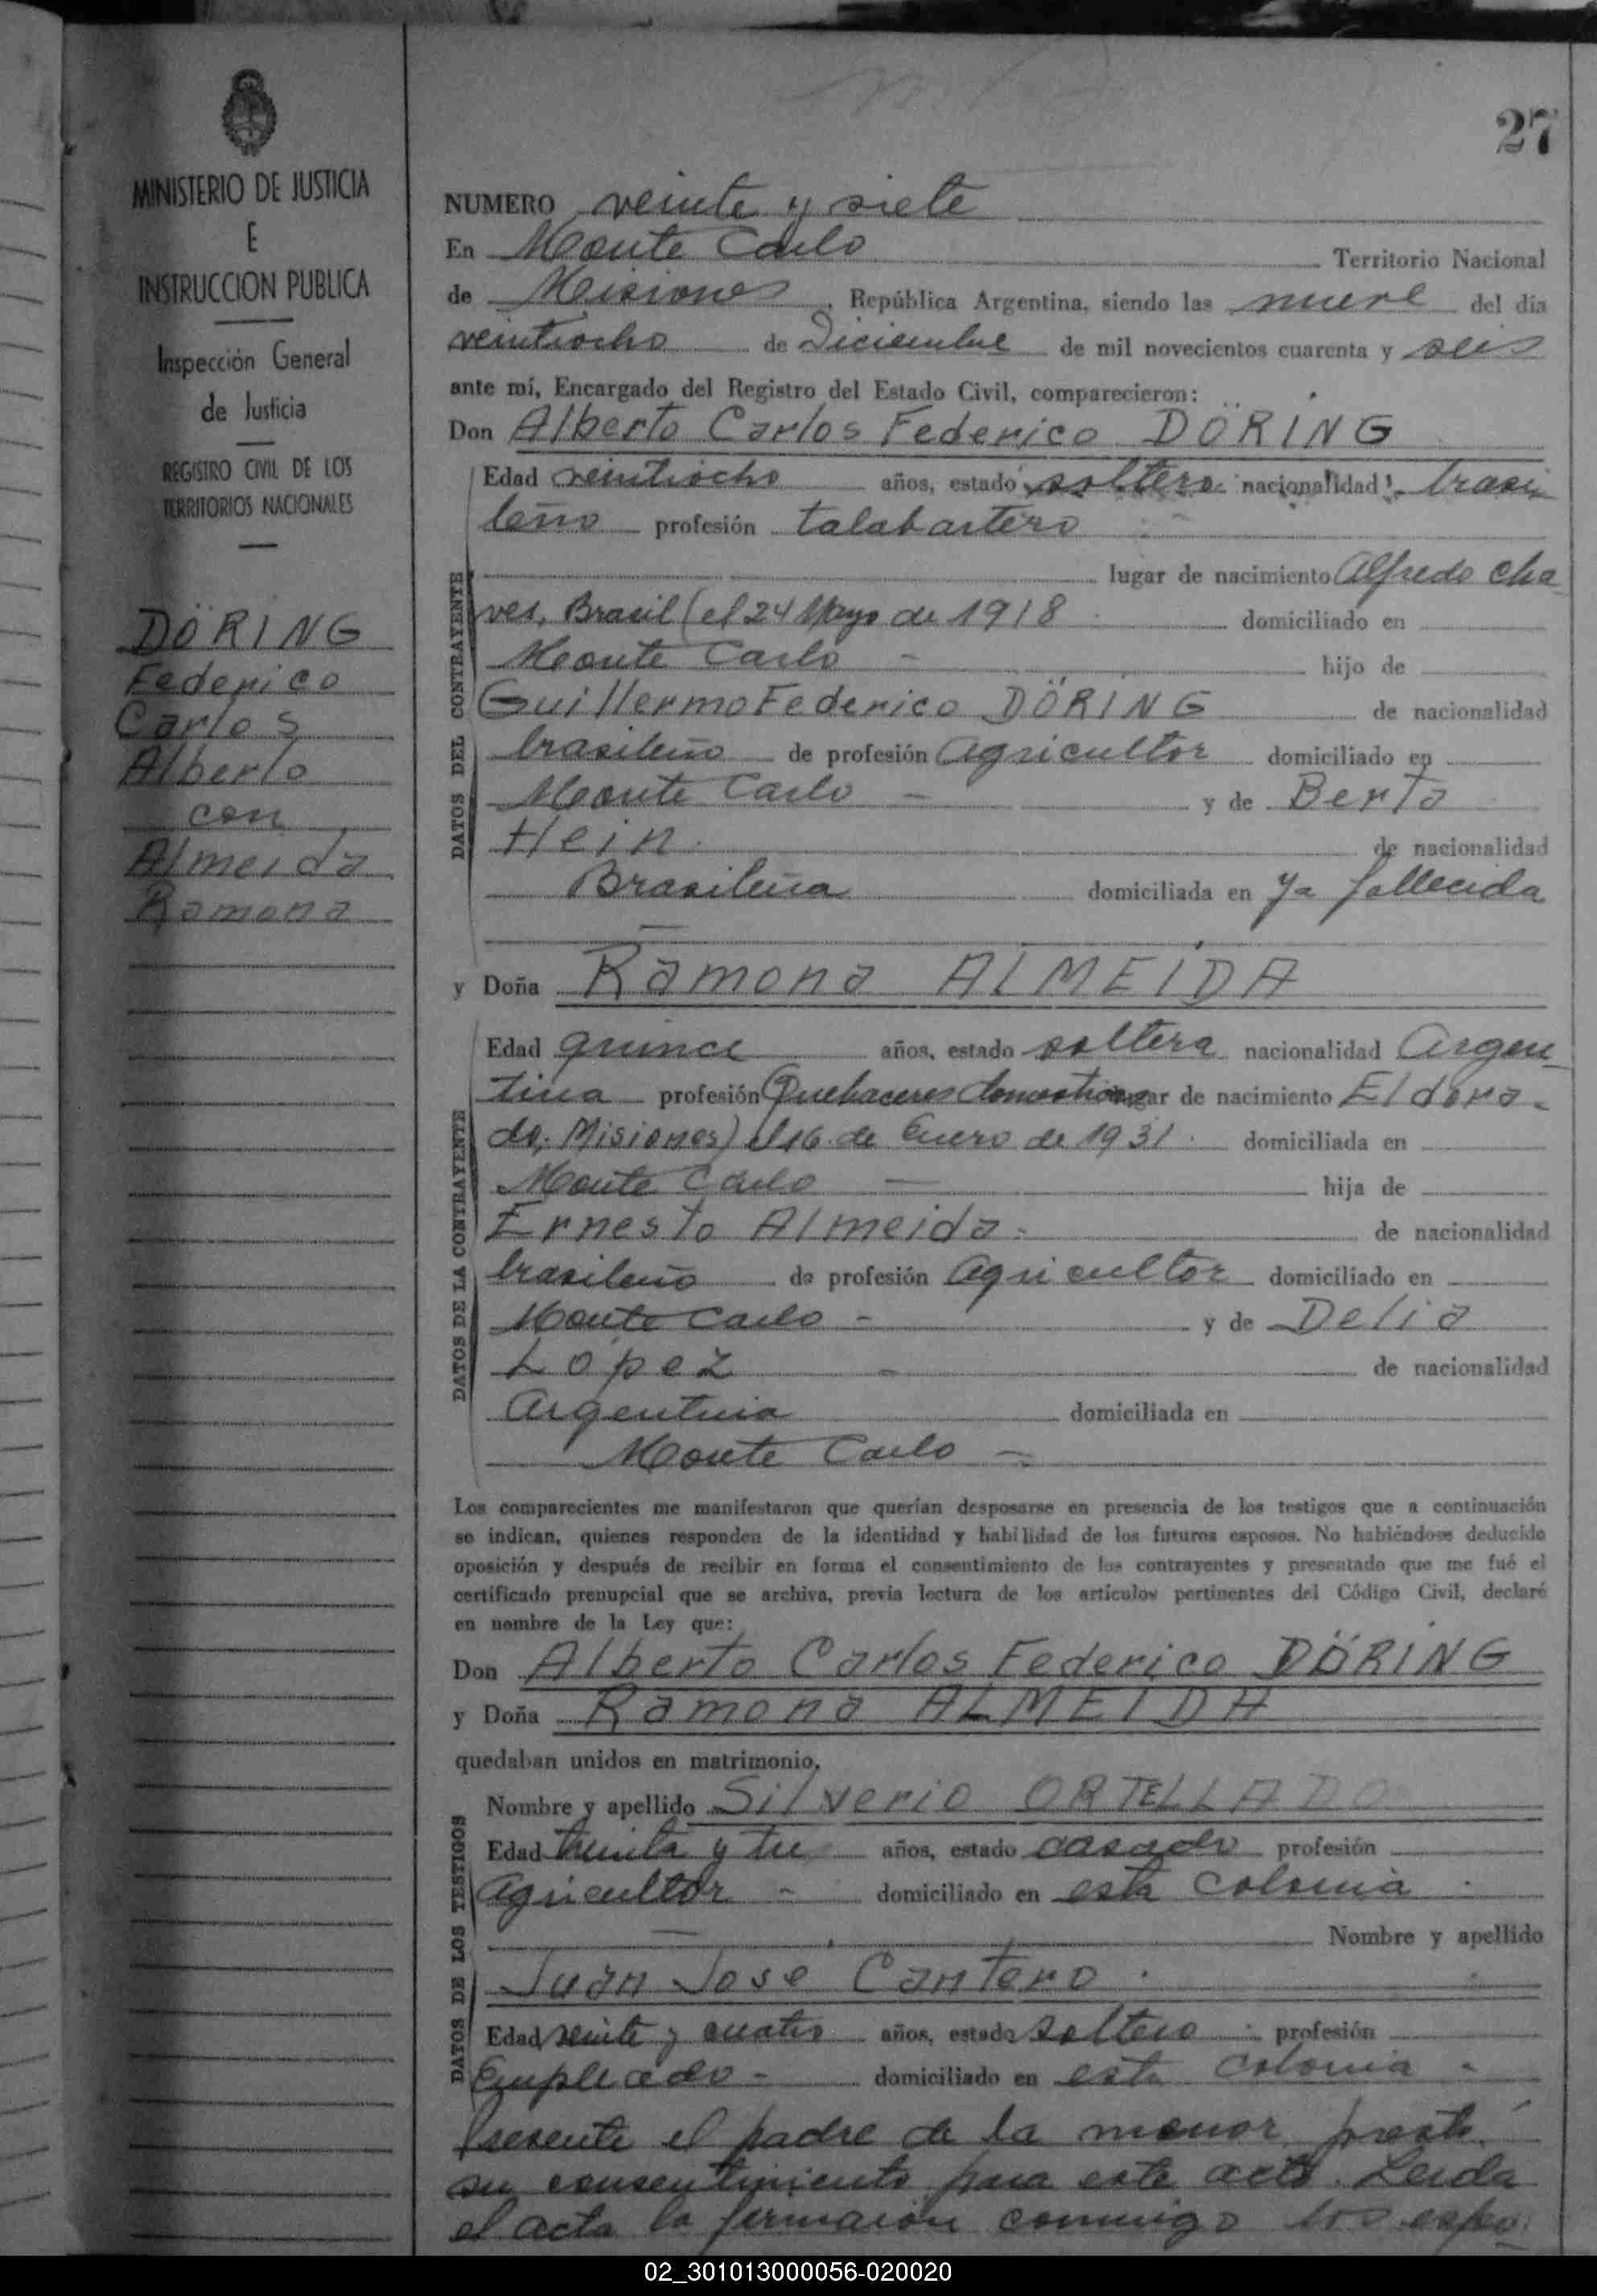 27
MINISTERIO DE JUSTICIA
E
INSTRUCCION PUBLICA
Inspección General
de Justicia
REGISTRO CIVIL DE LOS
TERRITORIOS NACIONALES
DÖRING
Federico
Carlos
Alberto
con
Almeida
Ramona
NUMERO veinte y siete
En Monte Carlo Territorio Nacional
de Misiones, República Argentina, siendo las nueve del día
veintiocho de Diciembre de mil novecientos cuarenta y seis
ante mí, Encargado del Registro del Estado Civil, comparecieron:
Don Alberto Carlos Federico DÖRING
DATOS DEL CONTRAYENTE
Edad veintiocho años, estado soltero nacionalidad brasi
leño profesión talabartero
lugar de nacimiento Alfredo Cha
ves, Brasil (el 24 Mayo de 1918 domiciliado en
Monte Carlo - hijo de
Guillermo Federico DÖRING de nacionalidad
brasileño de profesión Agricultor domiciliado en
Monte Carlo - y de Berta
Hein. de nacionalidad
Brasileña domiciliada en ya fallecida
y Doña Ramona ALMEIDA
DATOS DE LA CONTRAYENTE
Edad quince años, estado soltera nacionalidad Argen
tina profesión Quehaceres domesticos lugar de nacimiento Eldora-
do, Misiones) el 16 de Enero de 1931. domiciliada en
Monte Carlo - hija de
Ernesto Almeida. de nacionalidad
brasileño de profesión Agricultor domiciliado en
Monte Carlo - y de Delia
López - de nacionalidad
Argentina domiciliada en
Monte Carlo -
Los comparecientes me manifestaron que querían desposarse en presencia de los testigos que a continuación
se indican, quienes responden de la identidad y habilidad de los futuros esposos. No habiéndose deducido
oposición y después de recibir en forma el consentimiento de los contrayentes y presentado que me fué el
certificado prenupcial que se archiva, previa lectura de los artículos pertinentes del Código Civil, declaré
en nombre de la Ley que:
Don Alberto Carlos Federico DÖRING
y Doña Ramona ALMEIDA
quedaban unidos en matrimonio.
DATOS DE LOS TESTIGOS
Nombre y apellido Silverio ORTELLADO
Edad treinta y tres años, estado casado profesión
Agricultor - domiciliado en esta colonia
Nombre y apellido
Juan José Cantero
Edad veinte y cuatro años, estado soltero profesión
Empleado - domiciliado en esta colonia -
Presente el padre de la menor prestó
su consentimiento para este acto. Leida
el acta la firmaron conmigo los espo-
02_301013000056-020020